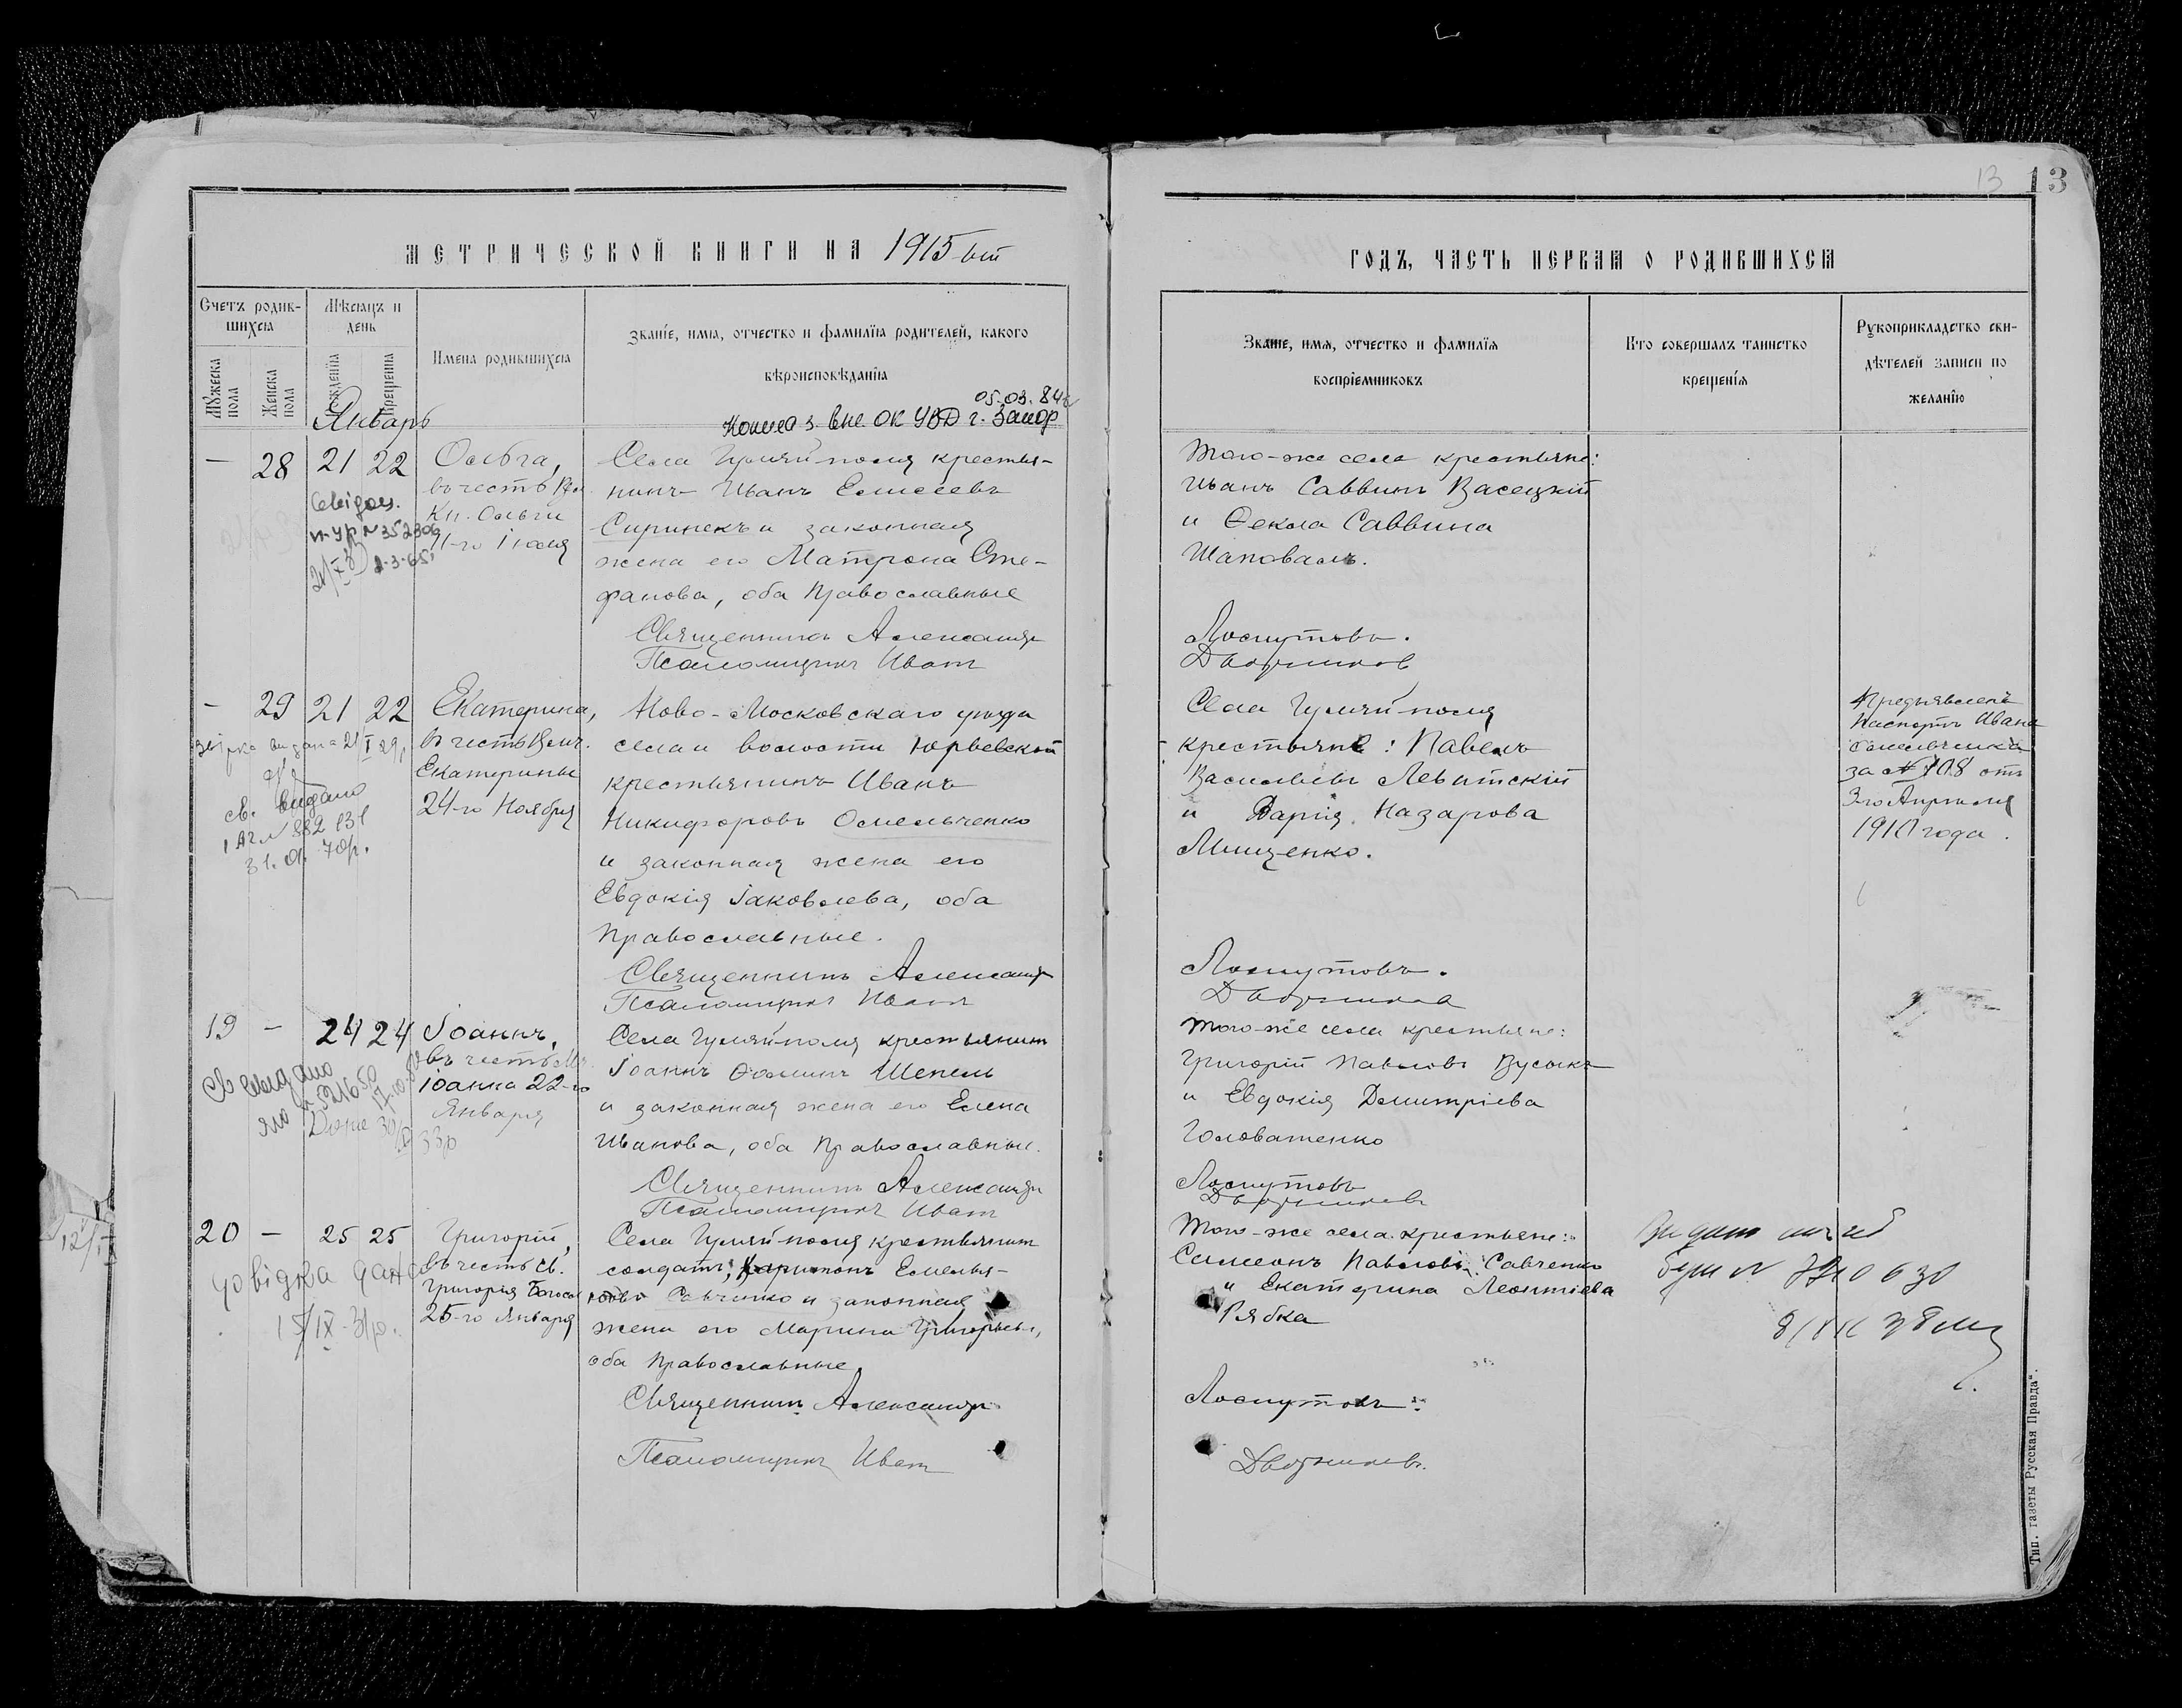 13 13
МЕТРИЧЕСКОЙ КНИГИ НА 1915-ый
ГОДЪ, ЧАСТЬ ПЕРВАЯ О РОДИВШИХСЯ
Счетъ родив-
шихся
Мужеска
пола
Женска
пола
Мѣсяцъ и
день
рожденія
крещенія
Имена родившихся
Званіе, имя, отчество и фамилія родителей, какого
вѣроисповѣданія
Званіе, имя, отчество и фамилія
воспріемниковъ
Кто совершалъ таинство
крещенія
Рукоприкладство сви-
дѣтелей записи по
желанію
05.03.84
Январь
— 28 21 22
Ольга,
въ честь
Кн. Ольги
11-го Іюля
№ 352306
2-3-65
Села Гуляй-поля крестья-
нинъ Иванъ Елисеевъ
Сиринекъ и законная
жена его Матрона Сте-
фанова, оба православные
Священникъ Александръ
Псаломщикъ Иванъ
Того-же села крестьяне:
Иванъ Саввинъ Васецкій
и Ѳекла Саввина
Шаповалъ.
Лоскутовъ.
Дворниковъ
— 29 21 22
Екатерина,
въ честь Велич.
Екатерины
24-го Ноября
св. видано
31.01.70р.
Ново-Московскаго уѣзда
села и волости Юрьевской
крестьянинъ Иванъ
Никифоровъ Омельченко
и законная жена его
Евдокія Іаковлева, оба
православные.
Священникъ Александръ
Псаломщикъ Иванъ
Села Гуляй-поля
крестьяне: Павелъ
Васильевъ Левитскій
и Дарія Назарова
Мищенко.
Лоскутовъ.
Дворниковъ
Предъявленъ
паспортъ Ивана
Омельченка
за № 708 отъ
3-го Апрѣля
1910 года.
19 — 24 24
Іоаннъ,
въ честь
Іоанна 22-го
Января
Села Гуляй-поля крестьянинъ
Іоаннъ Ѳоминъ Шепель
и законная жена его Елена
Иванова, оба православные.
Священникъ Александръ
Псаломщикъ Иванъ
Того-же села крестьяне:
Григорій Павловъ Бусыкъ
и Евдокія Димитріева
Головатенко
Лоскутовъ
Дворниковъ
20 — 25 25
Григорій,
въ честь Св.
Григорія Богосл.
25-го Января
довідка дана
Села Гуляй-поля крестьянинъ
солдатъ, Харитонъ Емелья-
новъ Савченко и законная
жена его Марина Григорьева,
оба православные
Священникъ Александръ
Псаломщикъ Иванъ
Того-же села крестьяне:
Симеонъ Павловъ Савченко
и Екатерина Леонтіева
Рябка
Лоскутовъ.
Дворниковъ.
Тип. газеты Русская Правда".